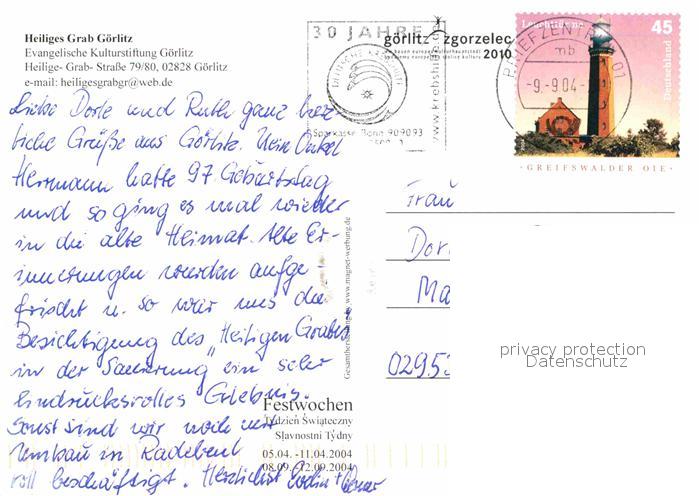 Heiliges Grab Görlitz
Evangelische Kulturstiftung Görlitz
Heilige- Grab- Straße 79/80, 02828 Görlitz
e-mail: heiligesgrabgr@web.de
Liebe Dorle und Ruth ganz herz-
liche Grüße aus Görlitz. Mein Onkel
Herrmann hatte 97. Geburtstag
und so ging es mal wieder
in die alte Heimat. Alte Er-
innerungen wurden aufge-
frischt u. so war uns die
Besichtigung des „Heiligen Grabes
in der Sanierung" ein sehr
eindrucksvolles Erlebnis.
Sonst sind wir noch mit
Umbau in Radebeul
voll beschäftigt. Herzlichst
Festwochen
Tydzień Świąteczny
Slavnostni Týdny
05.04. - 11.04.2004
08.09. - 12.09.2004
Gesamtherstellung: www.magnet-werbung.de
30 JAHRE
DEUTSCHE KREBSHILFE
Sparkasse Bonn 909093
www.krebshilfe.de
görlitz zgorzelec
wir bauen europas kulturhauptstadt
2010
BRIEFZENTRUM 01
mb
-9.-9.04-
Leuchttürme
45
Deutschland
GREIFSWALDER OIE
Frau
Dor
Ma
0295
privacy protection
Datenschutz